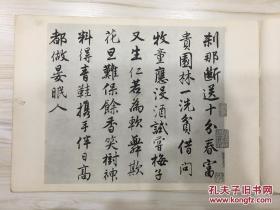 刹那斷送十分春富
貴園林一洗貧借問
牧童應没酒試嘗梅子
又生仁若為軟舞欺
花旦難保餘香笑樹神
料得青鞋携手伴日高
都做晏眠人